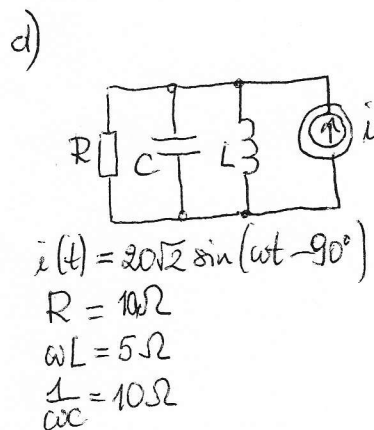 d)
R C L i
i(t) = 20√2 sin(ωt - 90°)
R = 10Ω
ωL = 5Ω
1/ωC = 10Ω